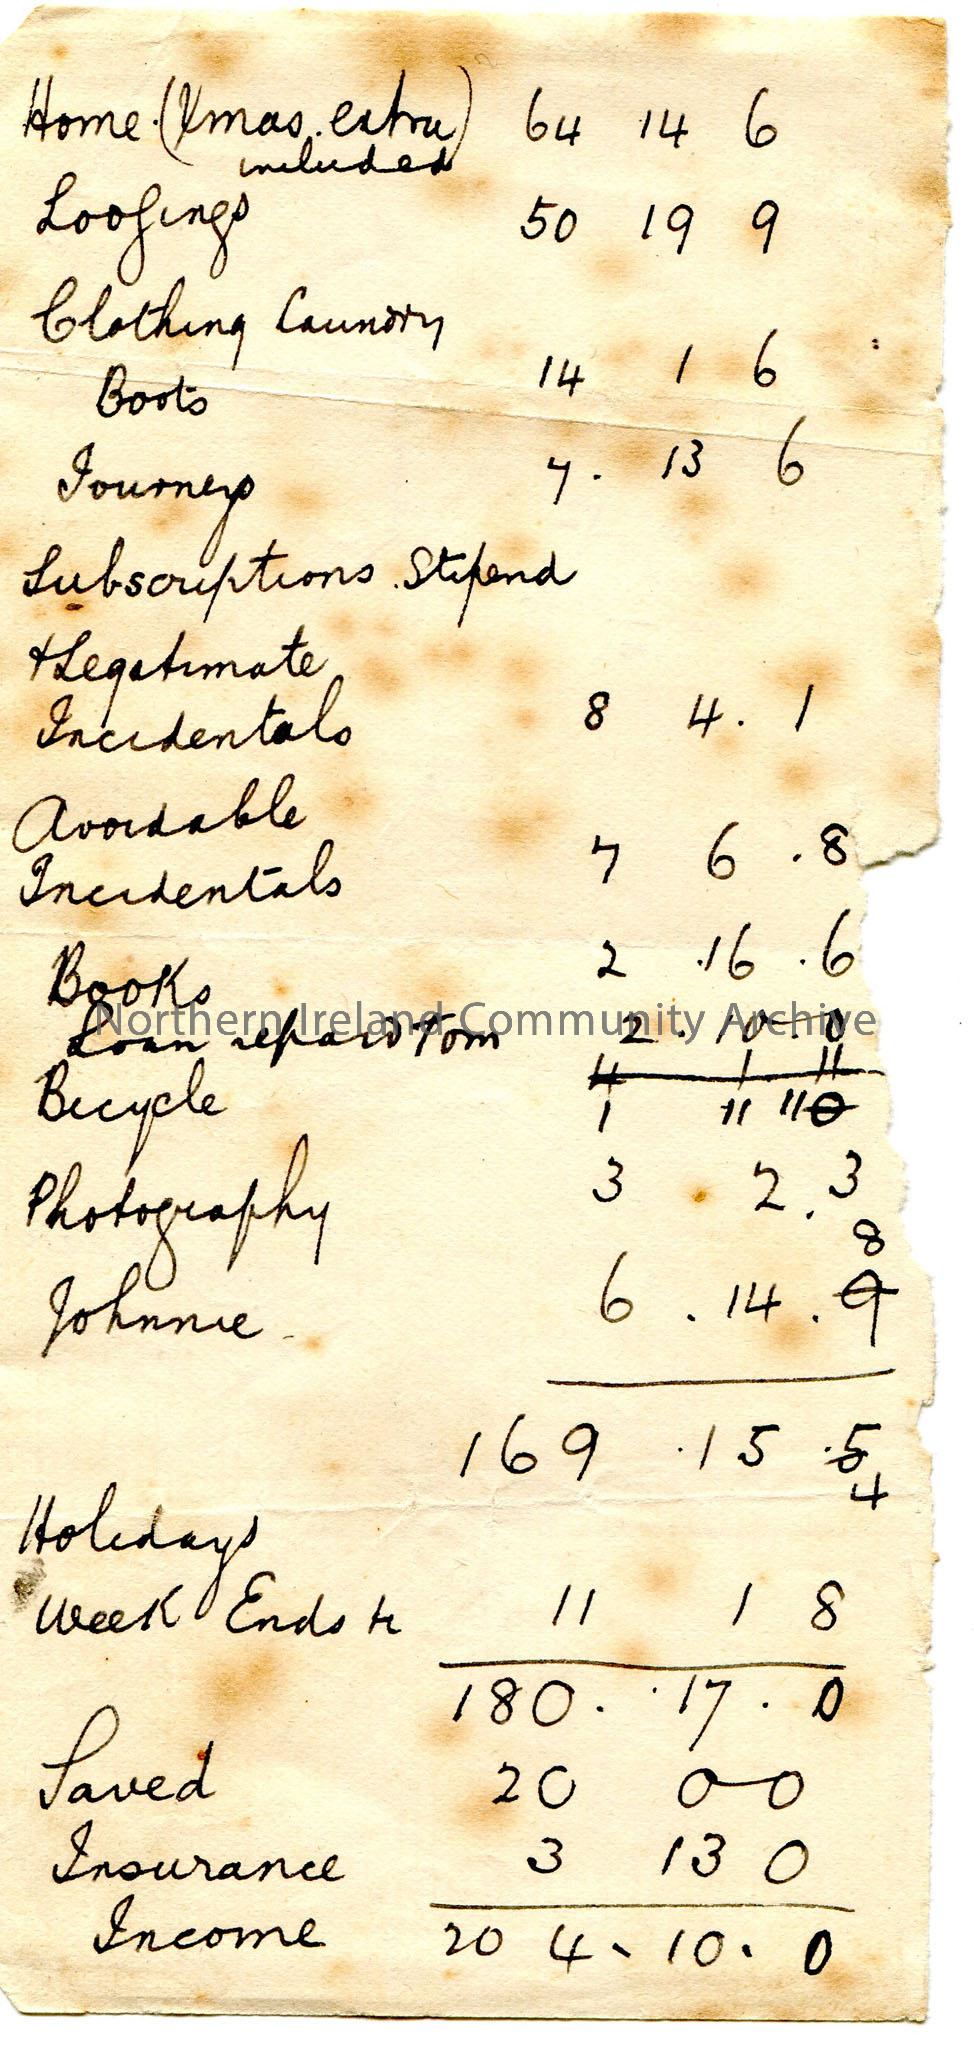 Home (Xmas. extra) 64 14 6
included
Lodgings 50 19 9
Clothing Laundry
Boots 14 1 6
Journeys 7. 13 6
Subscriptions. Stipend
+ Legatimate
Incidentals 8 4. 1
Avoidable
Incidentals 7 6 .8
Books 2 .16 .6
Northern Ireland Community Archive
Loan repaid Tom 2. 10. 0
4 1 11
Bicycle 1 11 110
Photography 3 2. 3
8
Johnnie 6 . 14 . 9
169 .15 .5
4
Holidays
Week Ends &c 11 1 8
180. .17. 0
Saved 20 0-0
Insurance 3 13 0
Income 204. 10. 0